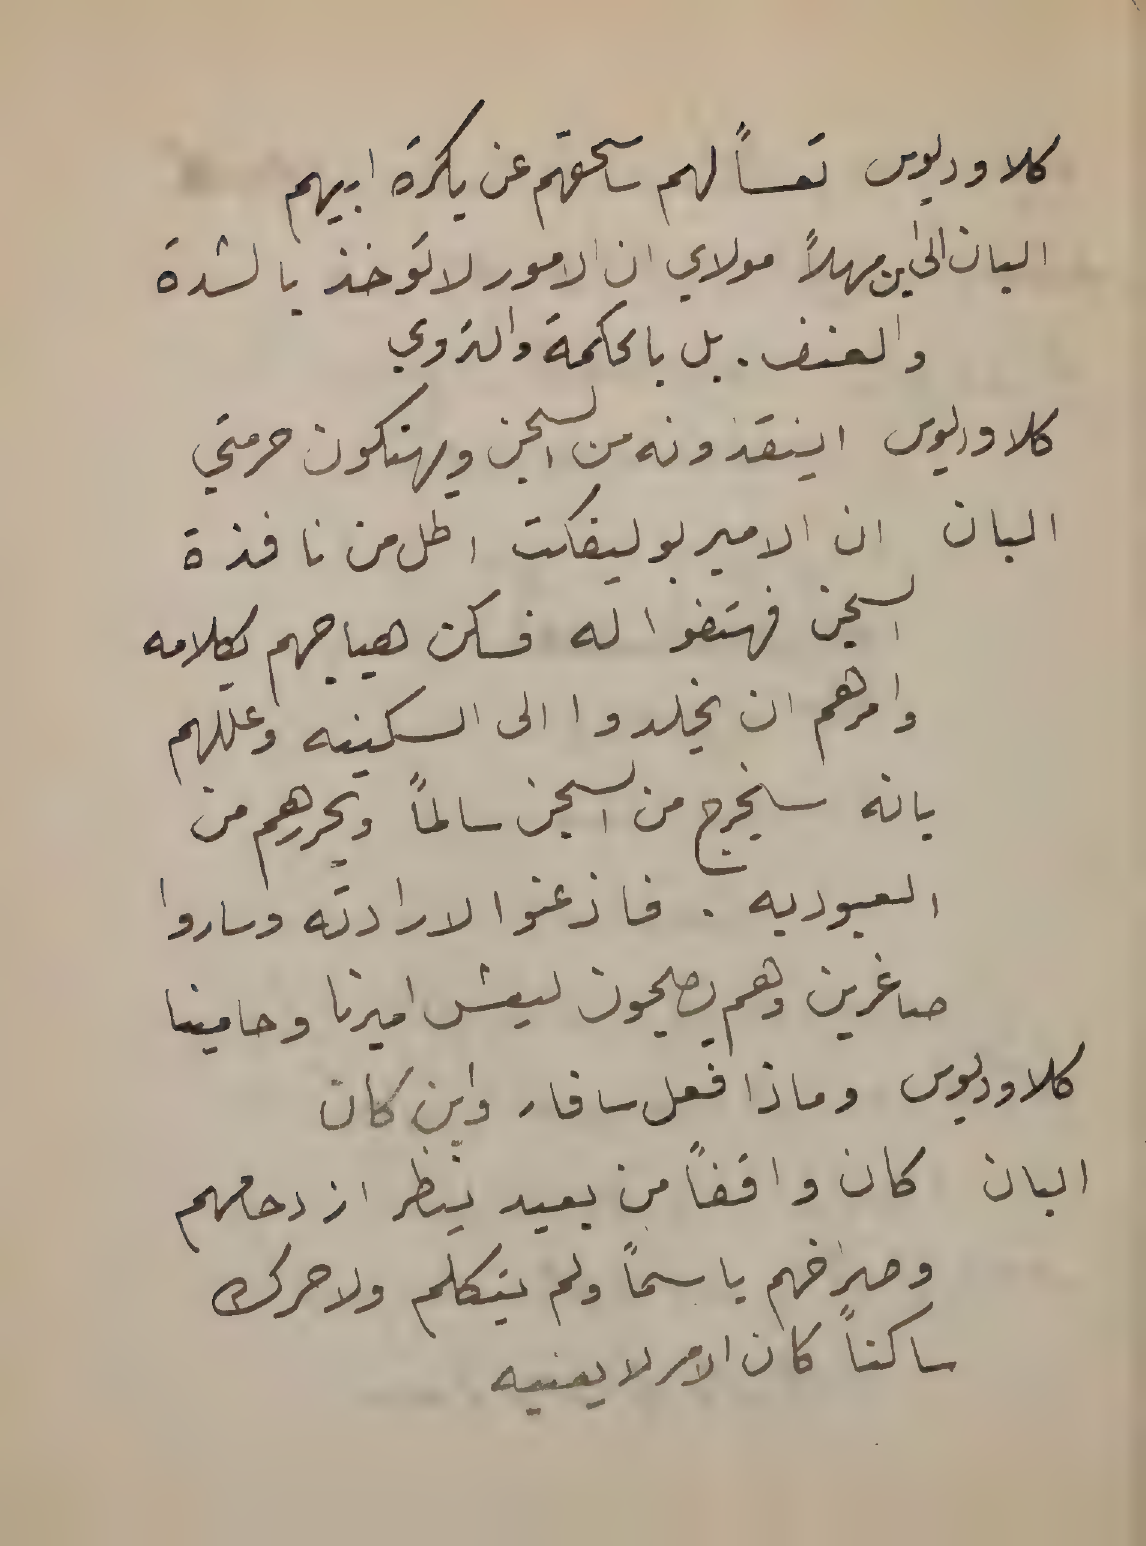 كلاوديوس تعساً لهم سأسحقهم عن بكرة ابيهم
البان مهلاً مولاي ان الامور لا تؤخذ بالشدة
والعنف. بل بالحكمة والتروي
كلاوديوس اينقذونه من السجن ويهتكون حرمتي
البان ان الامير بوليفكت اطل من نافذة
السجن فهتفوا له فسكن هياجهم بكلامه
وامرهم ان يخلدوا الى السكينه وعللهم
بانه سيخرج من السجن سالماً ويحررهم من
العبوديه. فاذعنوا لارادته وساروا
صاغرين وهم يصيحون ليعش اميرنا وحامينا
كلاوديوس وماذا فعل سافار واين كان
البان كان واقفاً من بعيد ينظر ازدحامهم
وصراخهم باسماً ولم يتكلم ولا حرك
ساكناً كان الامر لا يعنيه